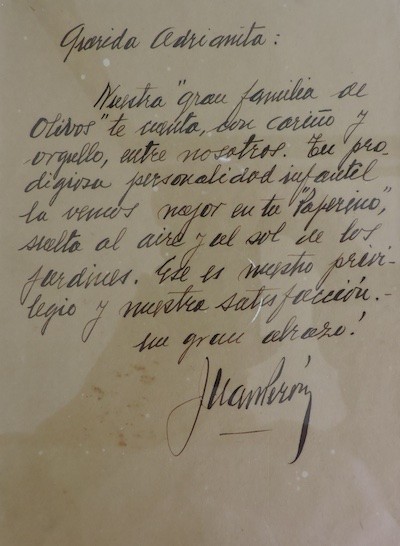 Querida Adrianita:
Nuestra "gran familia de
Olivos" te cuenta, con cariño y
orgullo, entre nosotros. Tu pro-
digiosa personalidad infantil
la vemos mejor en tu "Paperino",
suelta al aire y al sol de los
jardines. Ese es nuestro privi-
legio y nuestra satisfacción.-
un gran abrazo!
Juan Perón